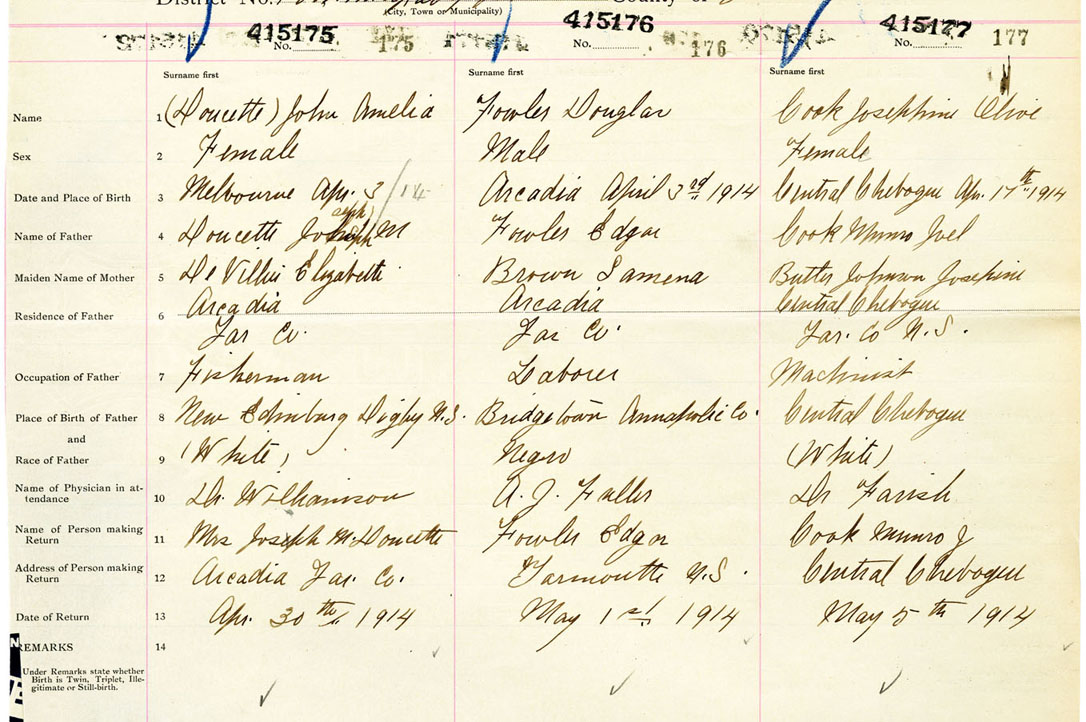 District No.
County of
(City, Town or Municipality)
415175
No. 175
415176
No. 176
415177
No. 177
Surname first
Surname first
Surname first
Name 1 (Doucette) John Amelia Fowler Douglas Cook Josephine Olive
Sex 2 Female Male Female
Date and Place of Birth 3 Melbourne Apr. 3/14 Arcadia April 3rd 1914 Central Chebogue Apr. 17th 1914
Name of Father 4 Doucette Joseph M Fowler Edgar Cook Munro Joel
Maiden Name of Mother 5 De Villier Elizabeth Brown Samena Butler Johnson Josephine
Residence of Father 6 Arcadia Arcadia Central Chebogue
Yar Co. Yar Co. Yar. Co N.S.
Occupation of Father 7 Fisherman Laborer Machinist
Place of Birth of Father 8 New Edinburg Digby N.S. Bridgetown Annapolis Co. Central Chebogue
and
Race of Father 9 (White) Negro (White)
Name of Physician in at-
tendance 10 Dr. Williamson A. J. Fuller Dr Farish
Name of Person making
Return 11 Mrs Joseph M. Doucette Fowler Edgar Cook Munro J
Address of Person making
Return 12 Arcadia Yar. Co. Yarmouth N.S. Central Chebogue
Date of Return 13 Apr. 30th 1914 May 1st 1914 May 5th 1914
REMARKS 14
Under Remarks state whether
Birth is Twin, Triplet, Ille-
gitimate or Still-birth.